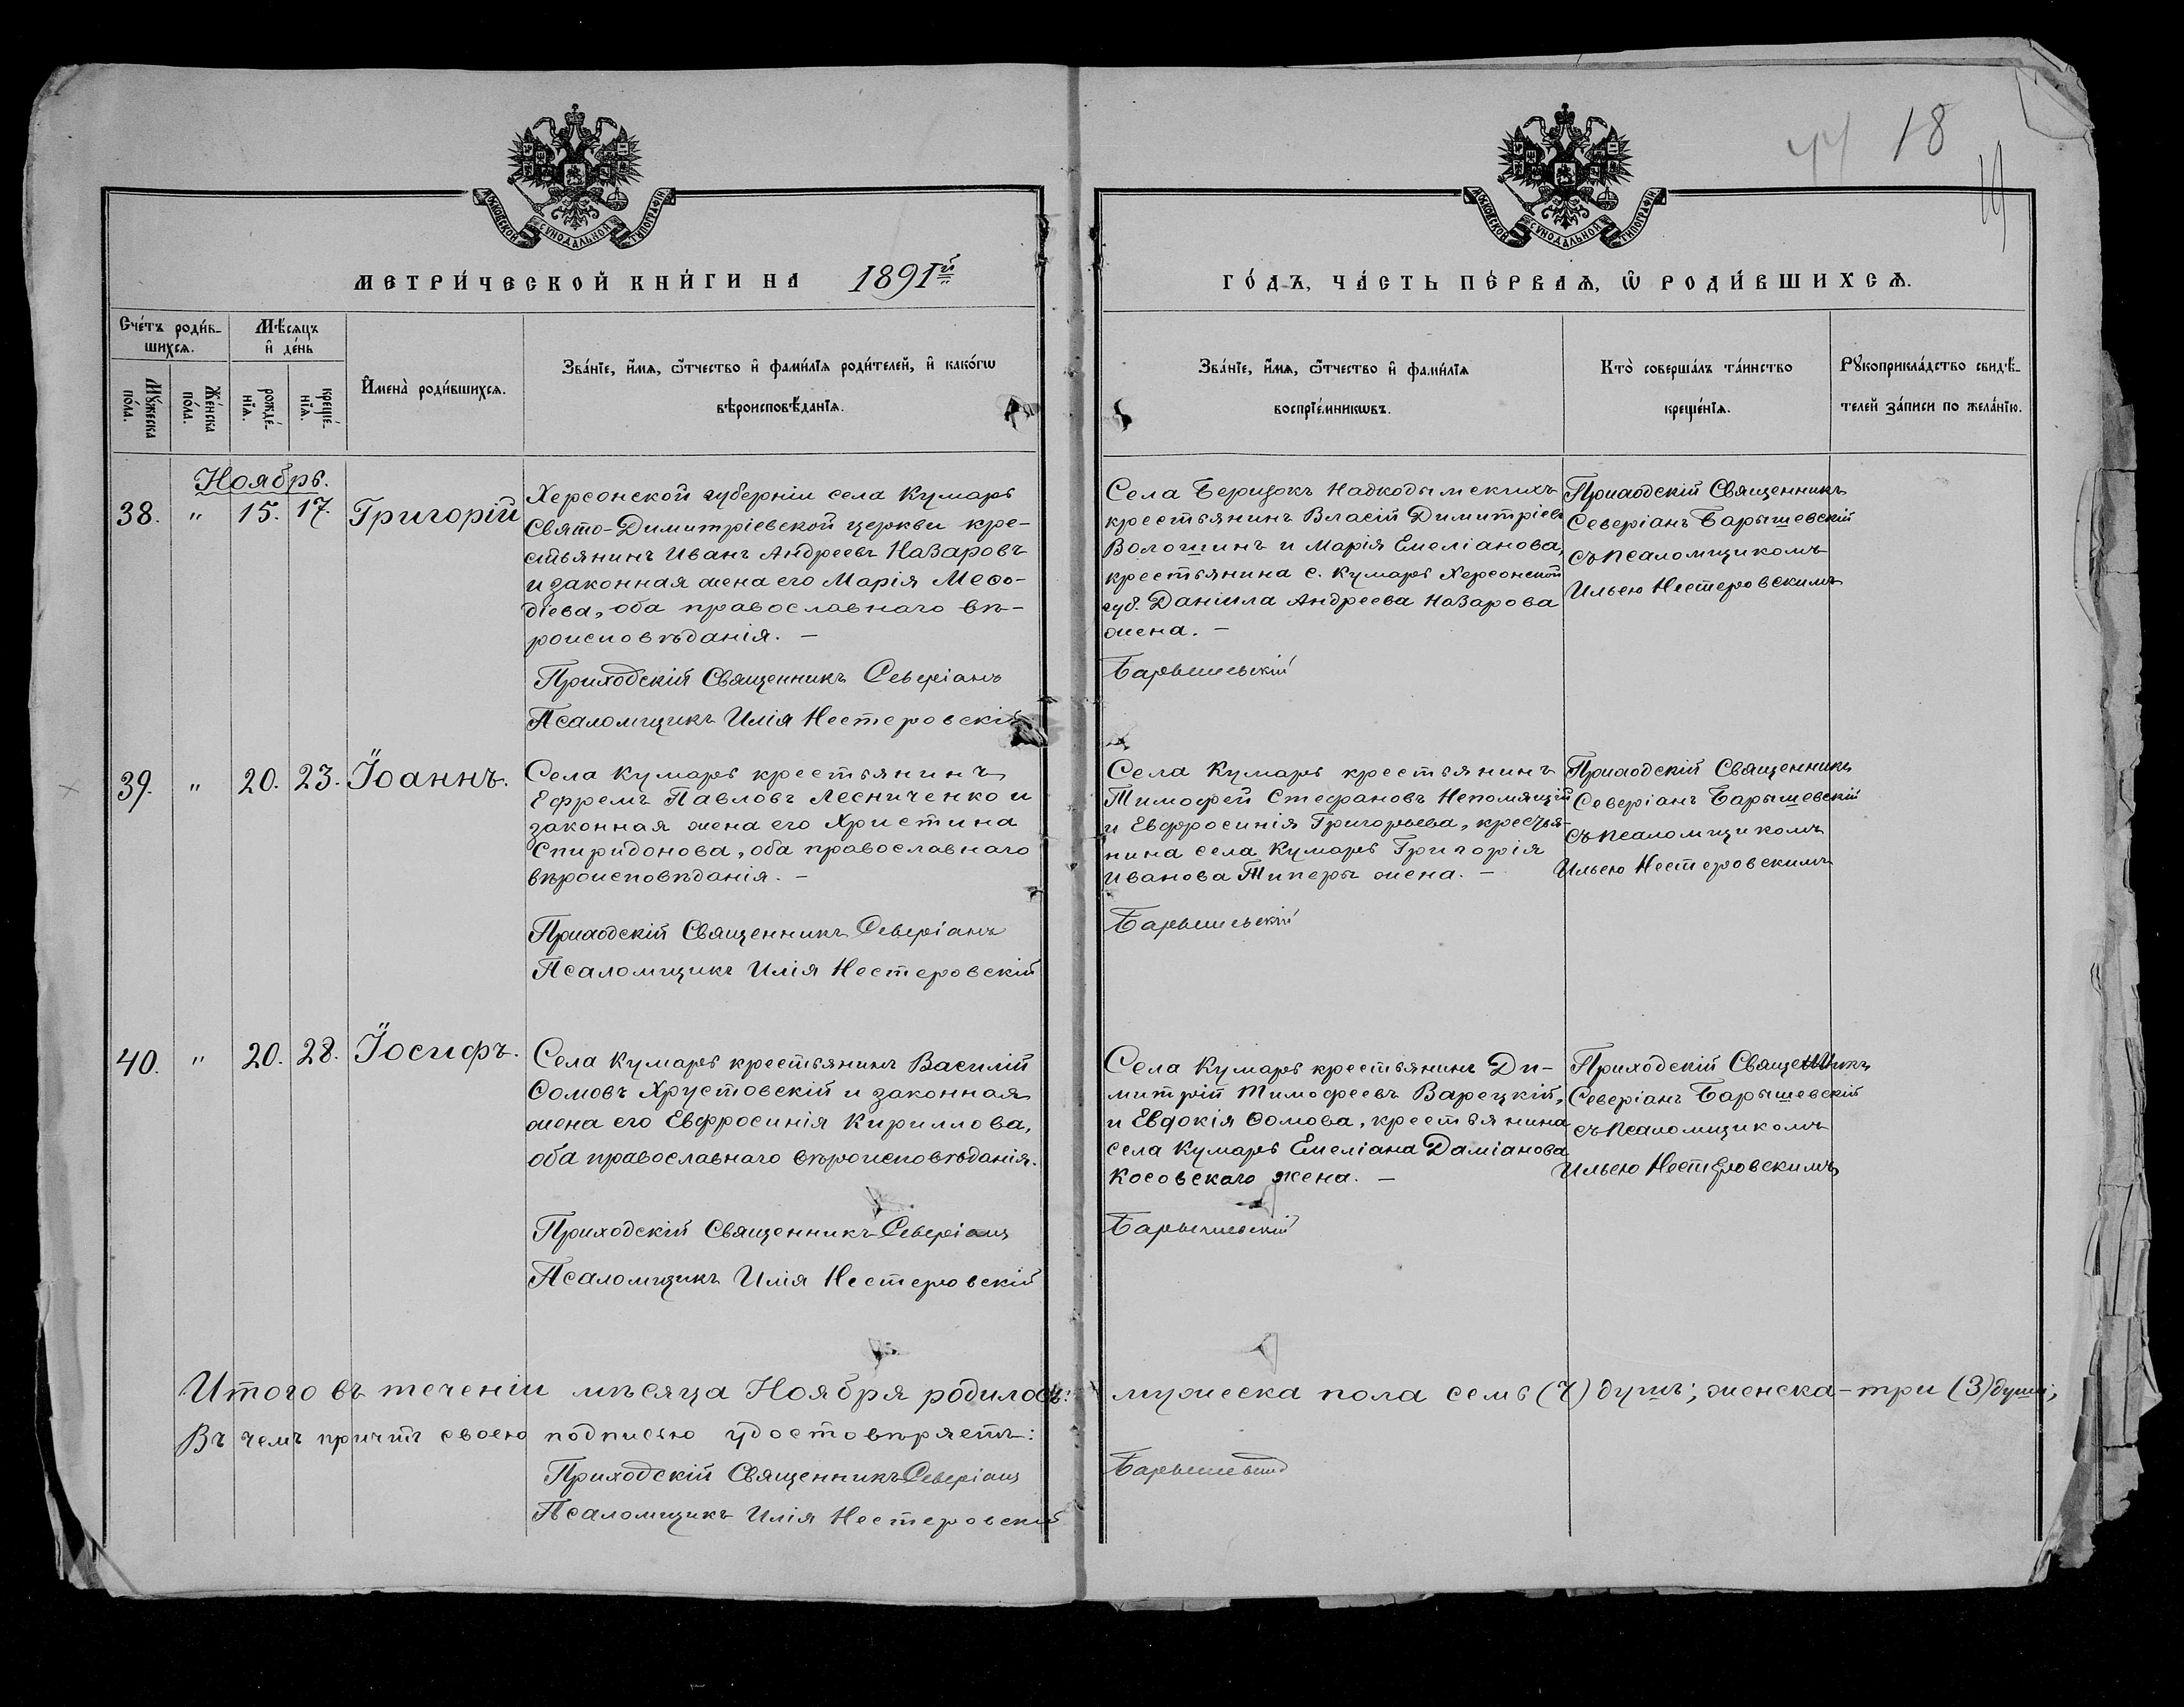 44 18
19
МОСКОВСКОЙ СУНОДАЛЬНОЙ ТИПОГРАФІИ
МОСКОВСКОЙ СУНОДАЛЬНОЙ ТИПОГРАФІИ
МЕТРИ́ЧЕСКОЙ КНИ́ГИ НА 1891й
ГО́ДЪ, ЧА́СТЬ ПЕ́РВАѦ, Ѡ РОДИ́ВШИХСѦ.
Сче́тъ роди́в-
шихсѧ.
Мѣ́сяцъ
и҆ де́нь
Мꙋ́жеска
по́ла.
Же́нска
по́ла.
рожде́-
нїѧ.
креще́-
нїѧ.
И҆мена̀ роди́вшихсѧ.
Зва́нїе, и҆́мѧ, ѻ҆́тчество и҆ фами́лїѧ роди́телей, и҆ како́гѡ
вѣроисповѣ́данїѧ.
Зва́нїе, и҆́мѧ, ѻ҆́тчество и҆ фами́лїѧ
воспрїе́мникѡвъ.
Кто̀ соверша́лъ та́инство
креще́нїѧ.
Рꙋкоприкла́дство свидѣ́-
телей за́писи по жела́нїю.
Ноябрь.
38. " 15. 17. Григорій
Херсонской губерніи села Кумаръ
Свято-Димитріевской церкви кре-
стьянинъ Иванъ Андреевъ Назаровъ
и законная жена его Марія Меѳо-
діева, оба православнаго вѣ-
роисповѣданія. –
Приходскій Священникъ Северіанъ
Псаломщикъ Илія Нестеровскій
Села Беризокъ Надкодымскихъ
крестьянинъ Власій Димитріевъ
Волошинъ и Марія Емеліанова,
крестьянина с. Кумаръ Херсонской
губ. Даніила Андреева Назарова
жена. –
Барышевскій
Приходскій Священникъ
Северіанъ Барышевскій
съ псаломщикомъ
Ильею Нестеровскимъ
39. " 20. 23. Іоаннъ.
Села Кумаръ крестьянинъ
Ефремъ Павловъ Лесниченко и
законная жена его Христина
Спиридонова, оба православнаго
вѣроисповѣданія. –
Приходскій Священникъ Северіанъ
Псаломщикъ Илія Нестеровскій
Села Кумаръ крестьянинъ
Тимофей Стефановъ Непомящій
и Евфросинія Григорьева, крестья-
нина села Кумаръ Григорія
Иванова Типеръ жена. –
Барышевскій
Приходскій Священникъ
Северіанъ Барышевскій
съ псаломщикомъ
Ильею Нестеровскимъ
40. " 20. 28. Іосифъ.
Села Кумаръ крестьянинъ Василій
Ѳомовъ Хрустовскій и законная
жена его Евфросинія Кириллова,
оба православнаго вѣроисповѣданія.
Приходскій Священникъ Северіанъ
Псаломщикъ Илія Нестеровскій
Села Кумаръ крестьянинъ Ди-
митрій Тимофеевъ Варецкій,
и Евдокія Ѳомова, крестьянина
села Кумаръ Емеліана Даміанова
Косовскаго жена. –
Барышевскій
Приходскій Священникъ
Северіанъ Барышевскій
съ псаломщикомъ
Ильею Нестеровскимъ
Итого въ теченіи мѣсяца Ноября родилось: мужеска пола семь (7) душъ; женска – три (3) души;
Въ чемъ причтъ своею подписью удостовѣряетъ:
Приходскій Священникъ Северіанъ Барышевскій
Псаломщикъ Илія Нестеровскій